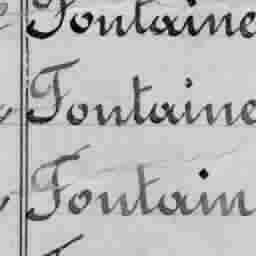 Fontaine
Fontaine
Fontain